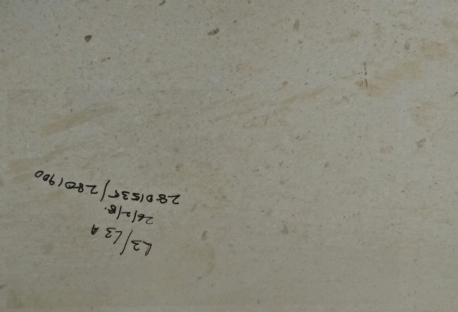 L3/L3A
26/2/18.
2801535/2801900